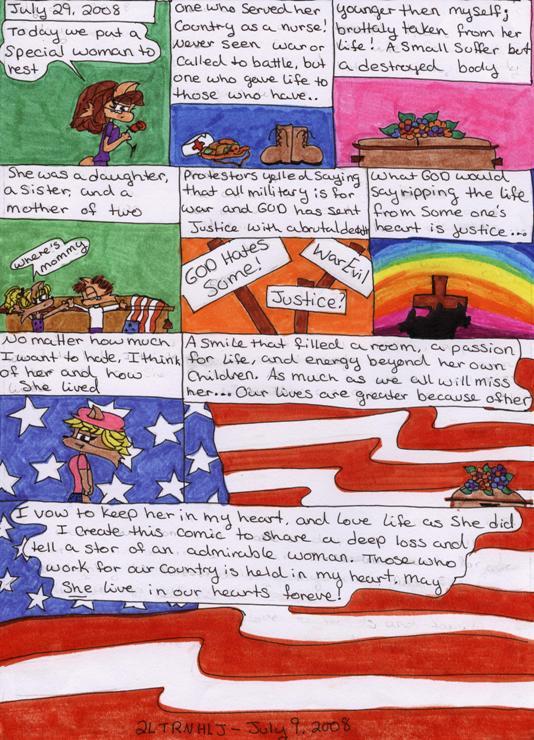 July 29, 2008
Today we put a
Special woman to
rest
one who served her
Country as a nurse!
Never seen war or
Called to battle, but
one who gave life to
those who have..
younger then myself;
bruttaly taken from her
life! A Small Suffer but
a destroyed body
She was a daughter,
a Sister, and a
mother of two
where's
mommy
Protestors yelled Saying
that all millitary is for
war and GOD has sent
Justice with a brutal death
GOD Hates
Some!
War Evil
Justice?
What GOD would
Say ripping the life
from Some one's
heart is justice...
No matter how much
I want to hate, I think
of her and how
She lived
A Smile that filled a room, a passion
for life, and energy beyond her own
Children. As much as we all will miss
her... Our lives are greater because of her
I vow to keep her in my heart, and love life as She did
I Create this comic to share a deep loss and
tell a stor of an admirable woman. Those who
work for our Country is held in my heart, May
She live in our hearts foreve!
2LTRNHLJ - July 9, 2008